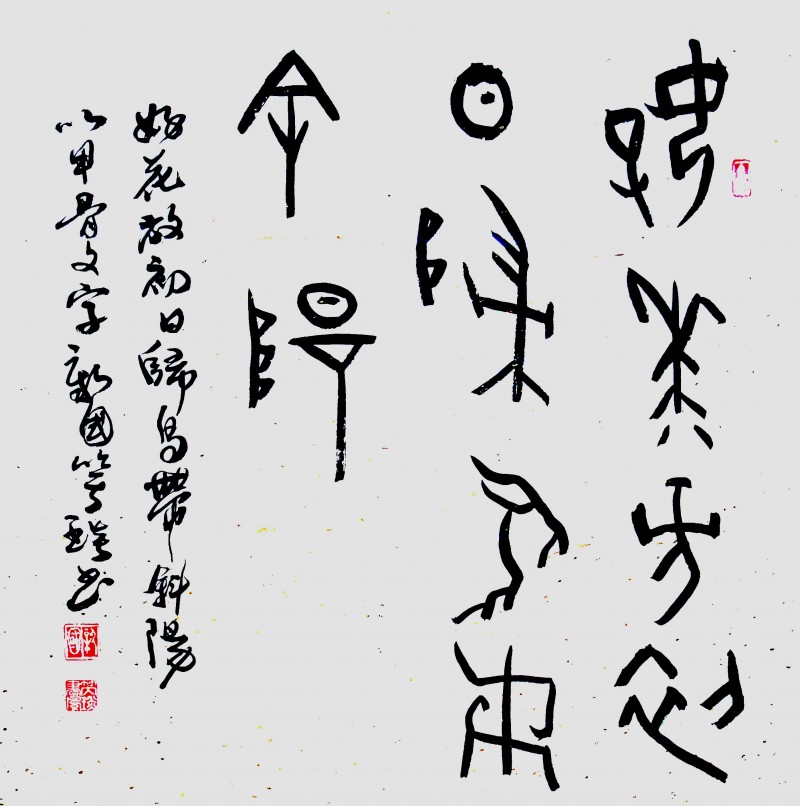 好花方初
日歸鳥帶
余陽
好花放初日歸鳥帶斜陽
以甲骨文字 國 書